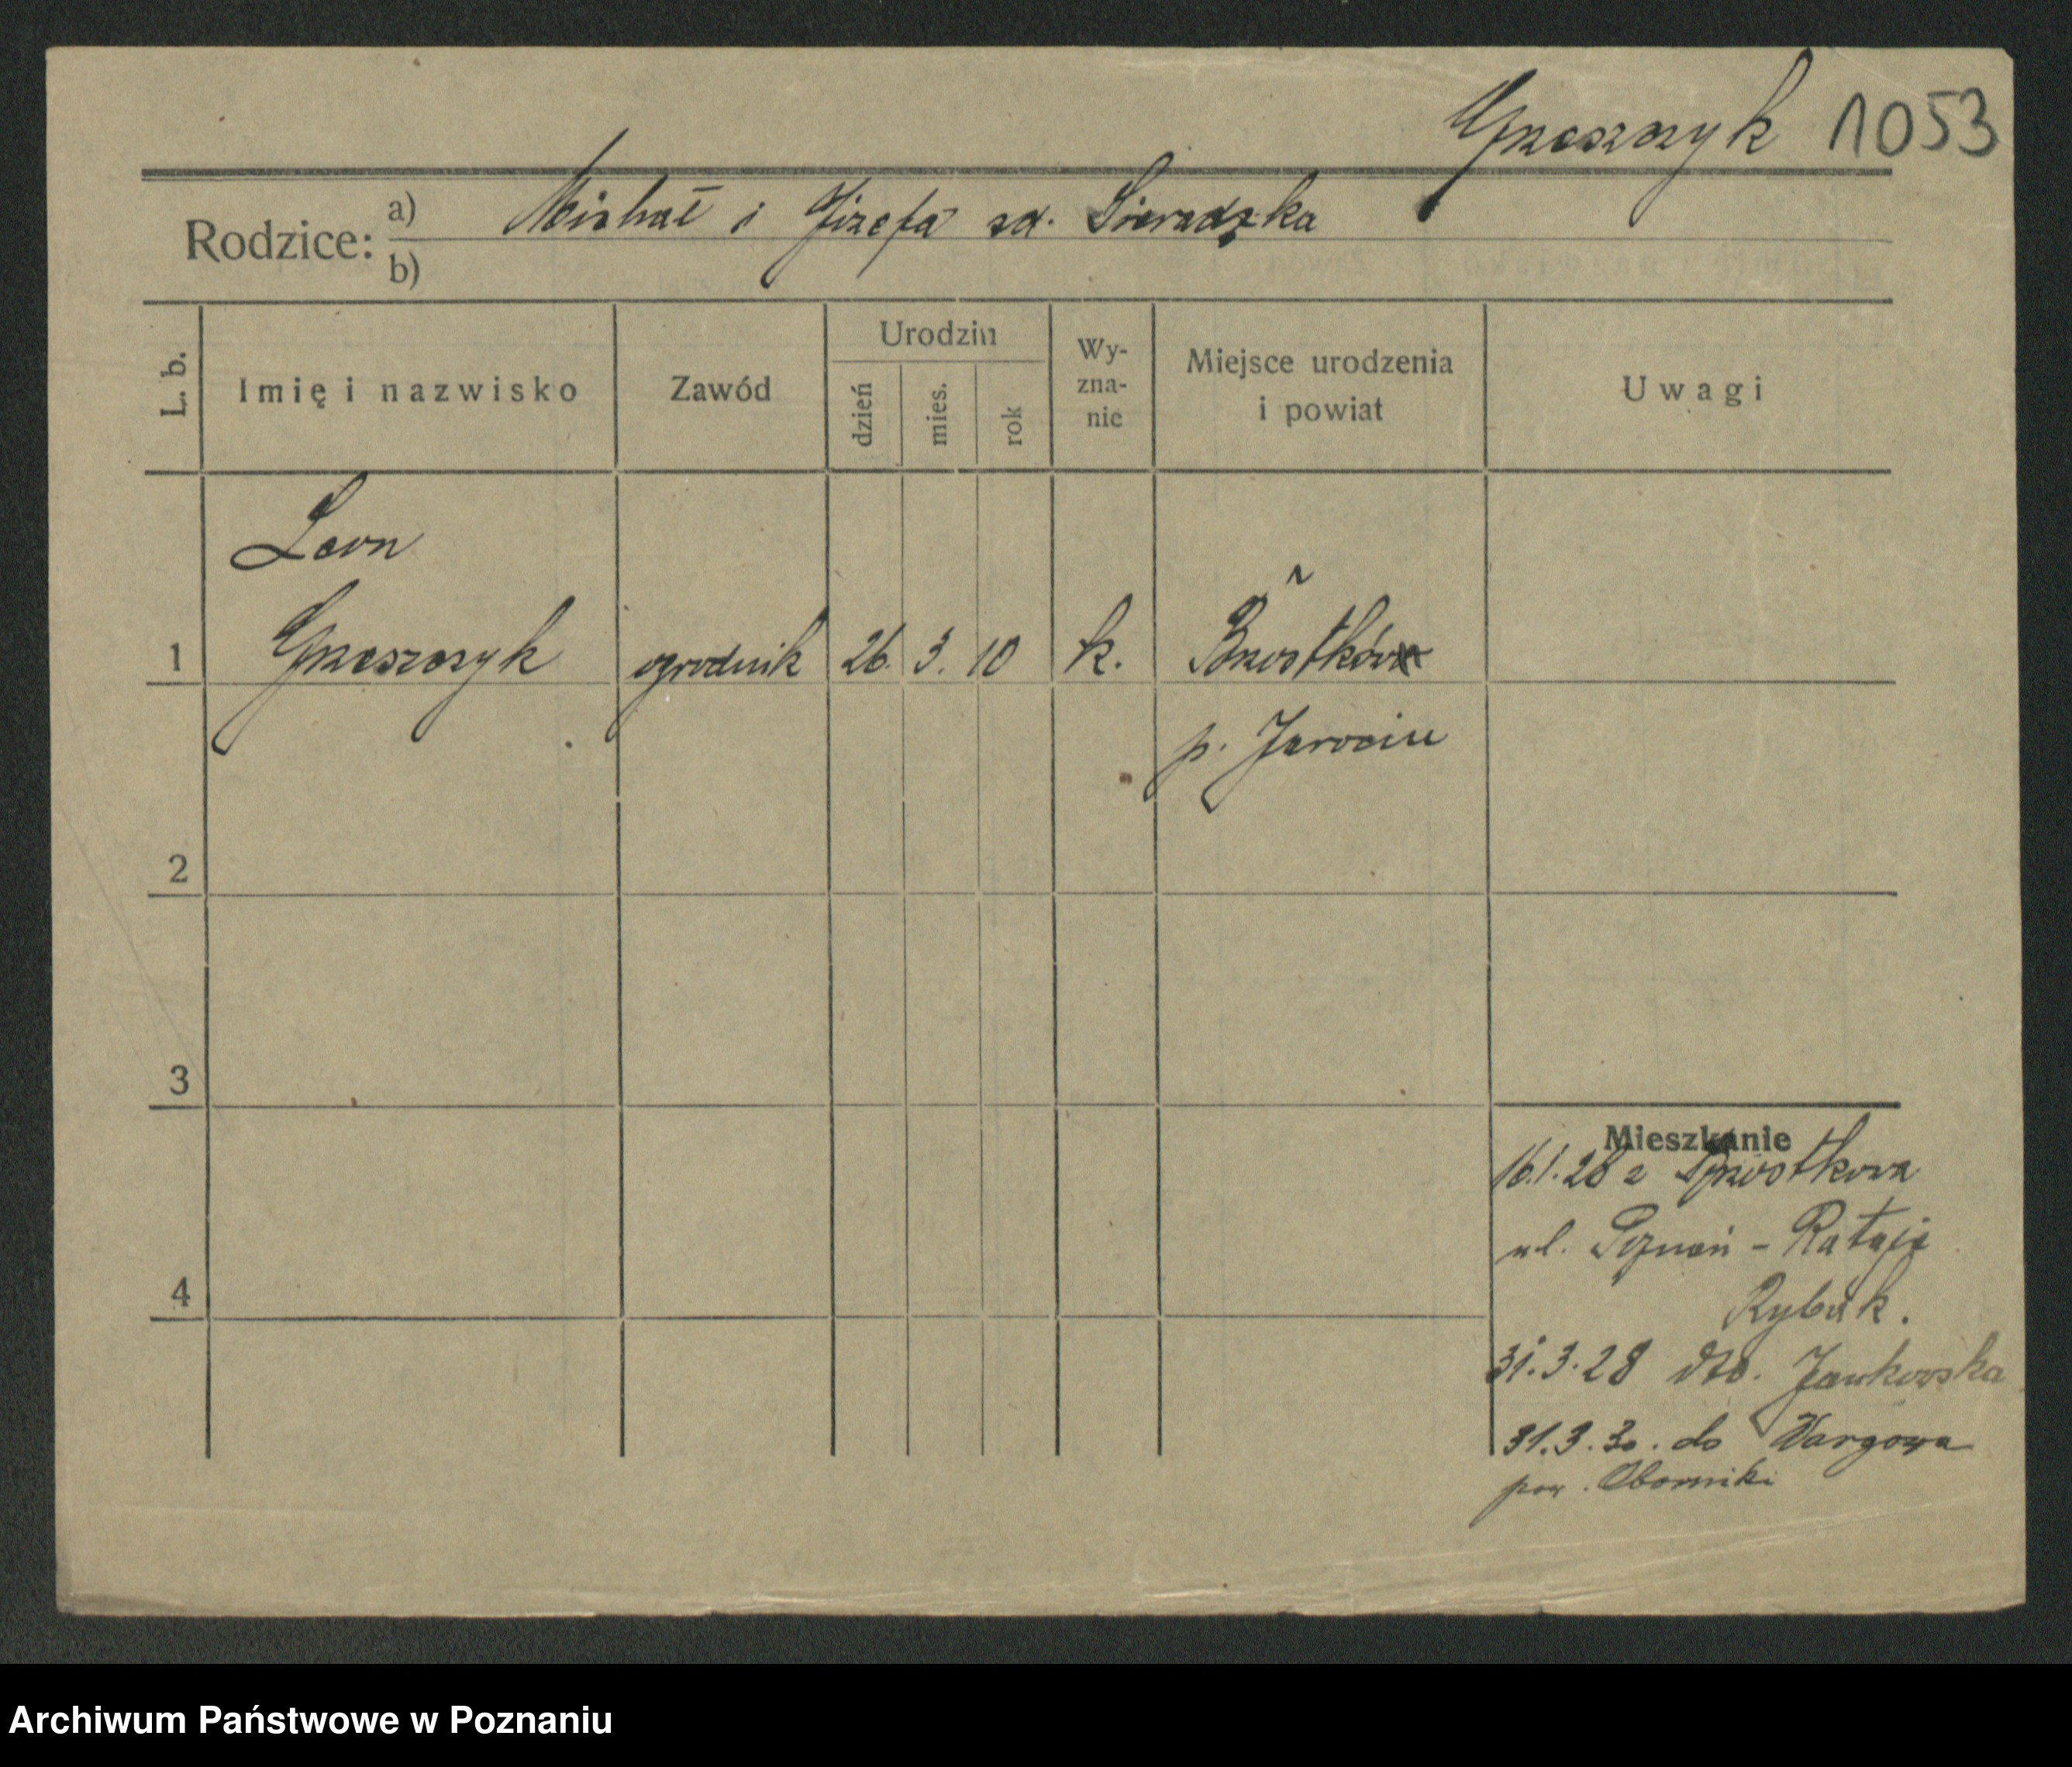 Grzeszczyk 1053
Rodzice: a) Michał i Józefa sd. Sieradzka
b)
L. b. Imię i nazwisko Zawód Urodzin dzień mies. rok Wy-zna-nie Miejsce urodzenia i powiat Uwagi
Leon
1 Grzeszczyk ogrodnik 26. 3. 10 k. Brzostków
p. Jarocin
2
3
Mieszkanie
16.1.28 z Brzostkowa
ul. Poznań - Rataje
4 Rybak.
31.3.28 dto. Jankowska
31.3.30. do Wargowa
pow. Oborniki
Archiwum Państwowe w Poznaniu